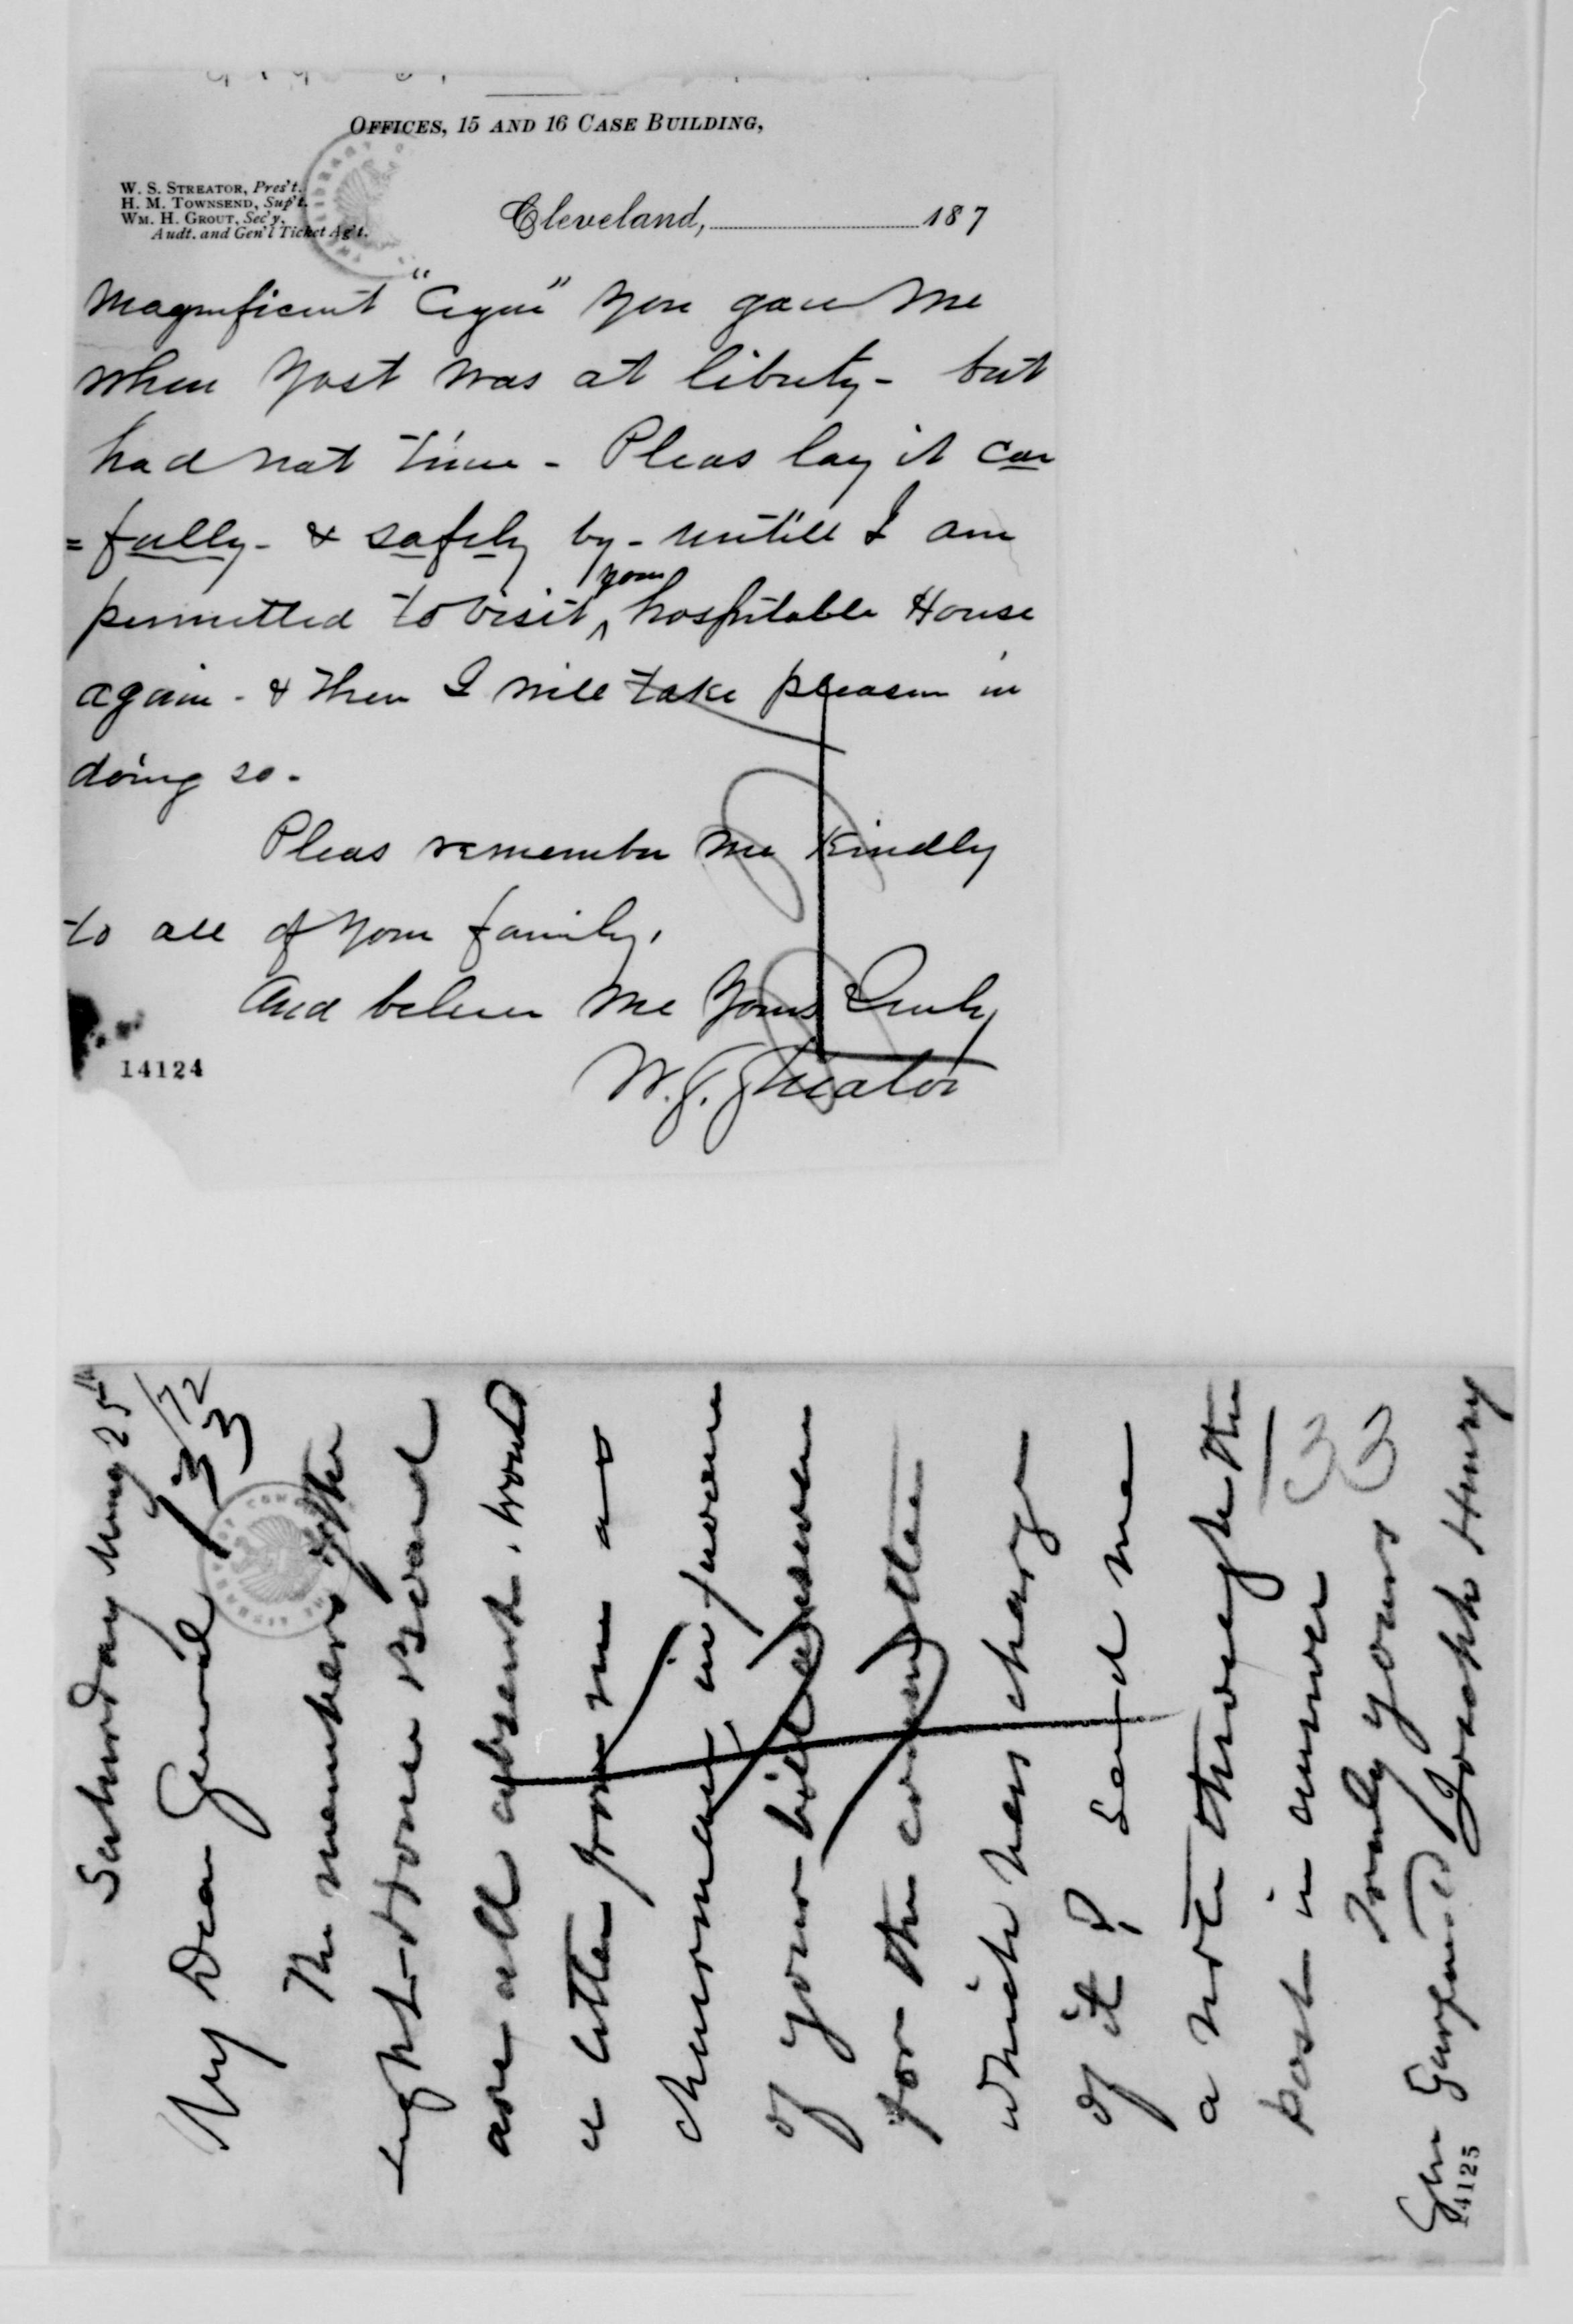 OFFICES, 15 AND 16 CASE BUILDING,
W. S. STREATOR, Pres't.
H. M. TOWNSEND, Sup't.
WM. H. GROUT, Sec'y,
Audt. and Gen'l Ticket Ag't.
Cleveland, 187
Magnificent "Cigar" you gave me
when Yost was at liberty - but
had not time - Pleas lay it car
=fully - & safely by - untill I am
permitted to visit your hospitable House
again - & then I will take pleasure in
doing so -
Pleas remember me kindly
to all of your family,
And believe me Yours Truly
W. S. Streator
14124
Saturday May 25th
/72
33
My Dear General
The members of the
Light-House Board
are all absent. Would
a letter from me as
chairman in favour
of your bill answer
for the committee
which has charge
of it? Send me
a note through the
post in answer
33
Truly yours
Joseph Henry
Gen Garfield
14125